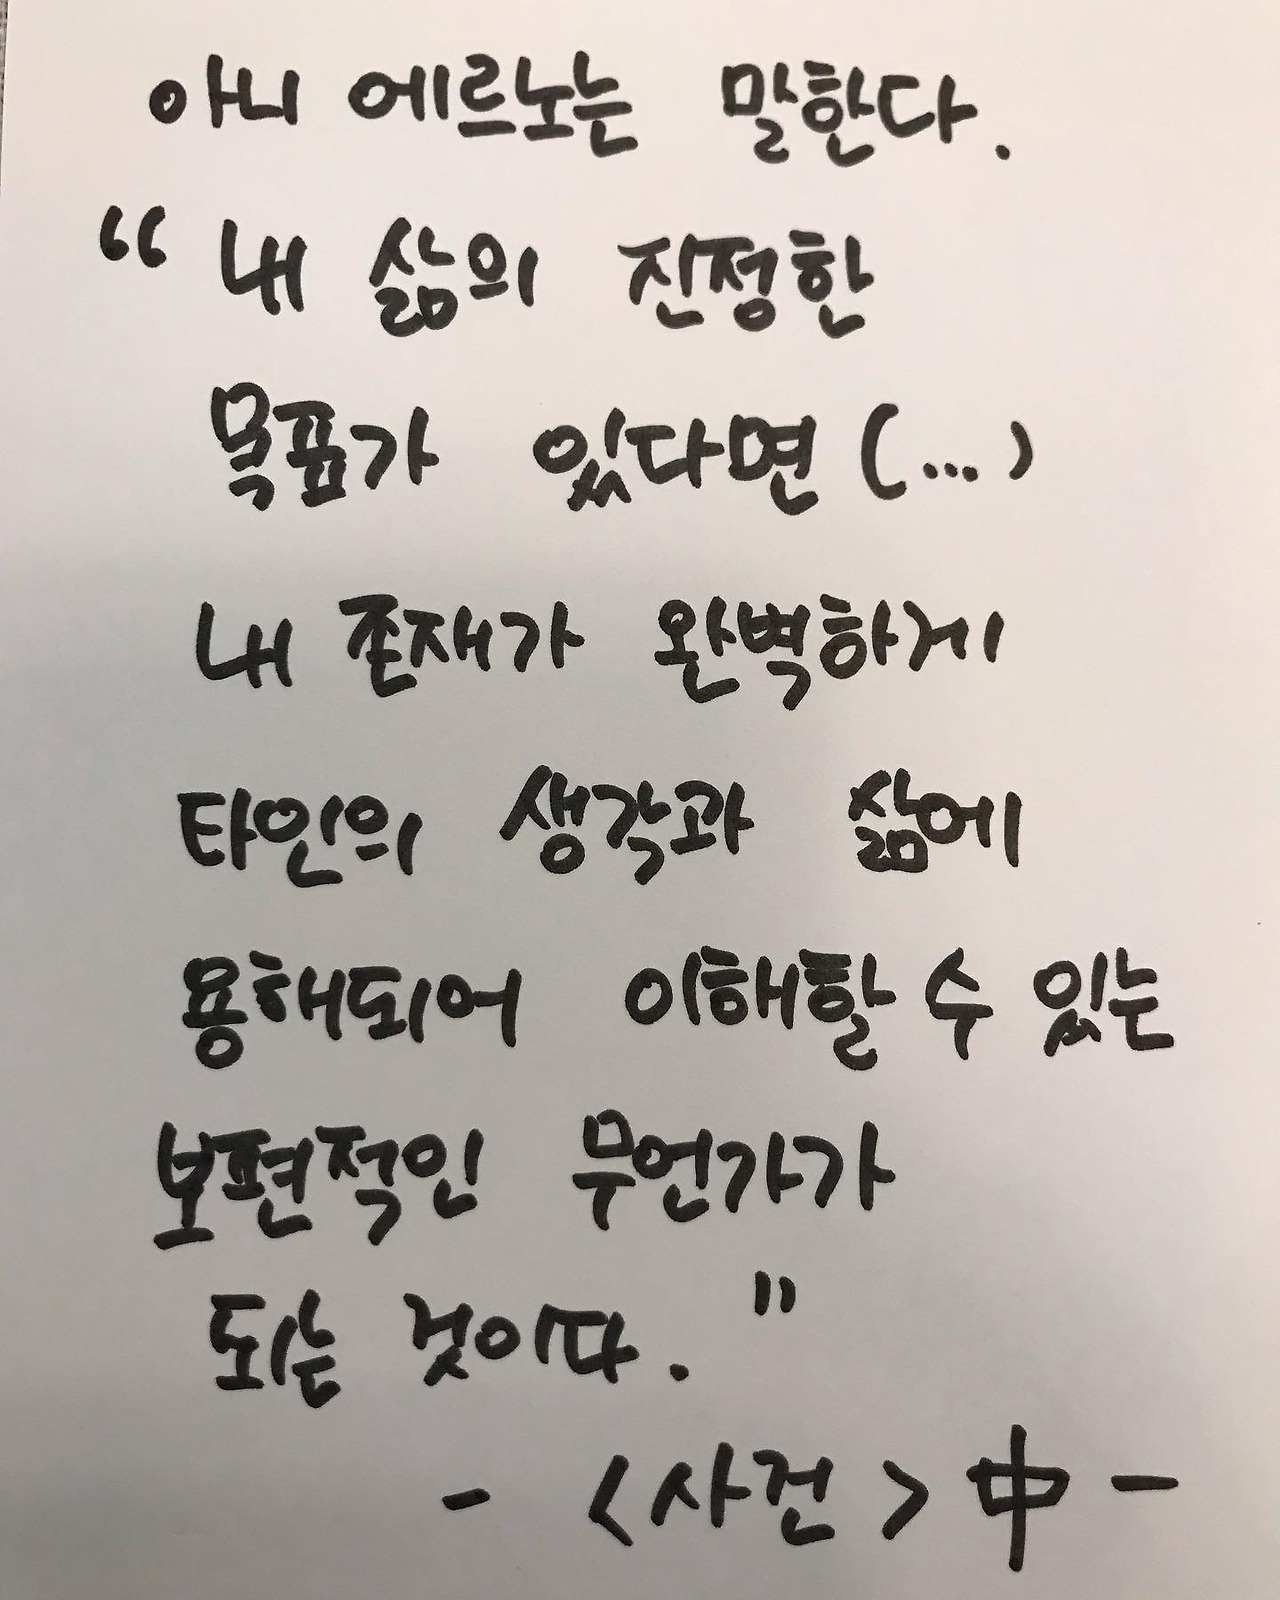 아니 에르노는 말한다.
“ 내 삶의 진정한
목표가 있다면 (...)
내 존재가 완벽하게
타인의 생각과 삶에
용해되어 이해할 수 있는
보편적인 무언가가
되는 것이다. "
- <사건> 中 -